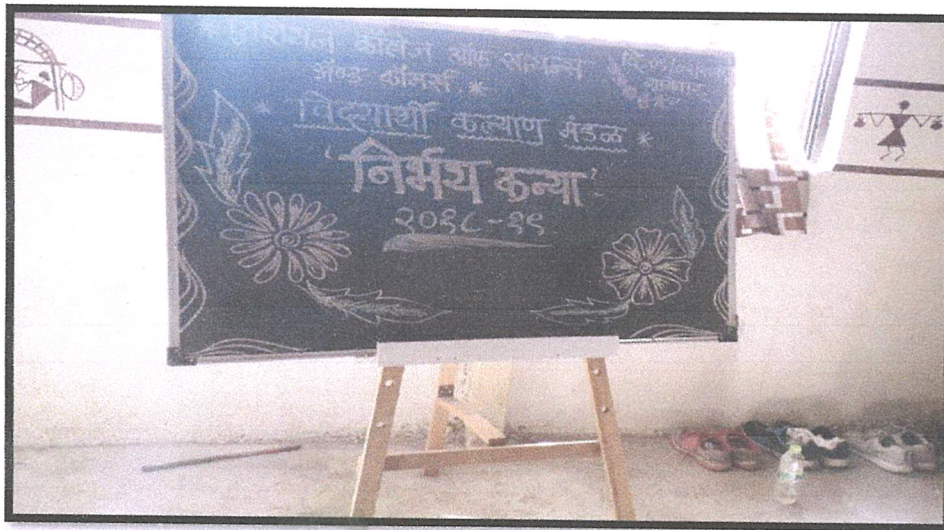 कॉलेज ऑफ सायन्स
अ‍ॅण्ड कॉमर्स. *
* विद्यार्थी कल्याण मंडळ *
'निर्भय कन्या'
२०१८-१९